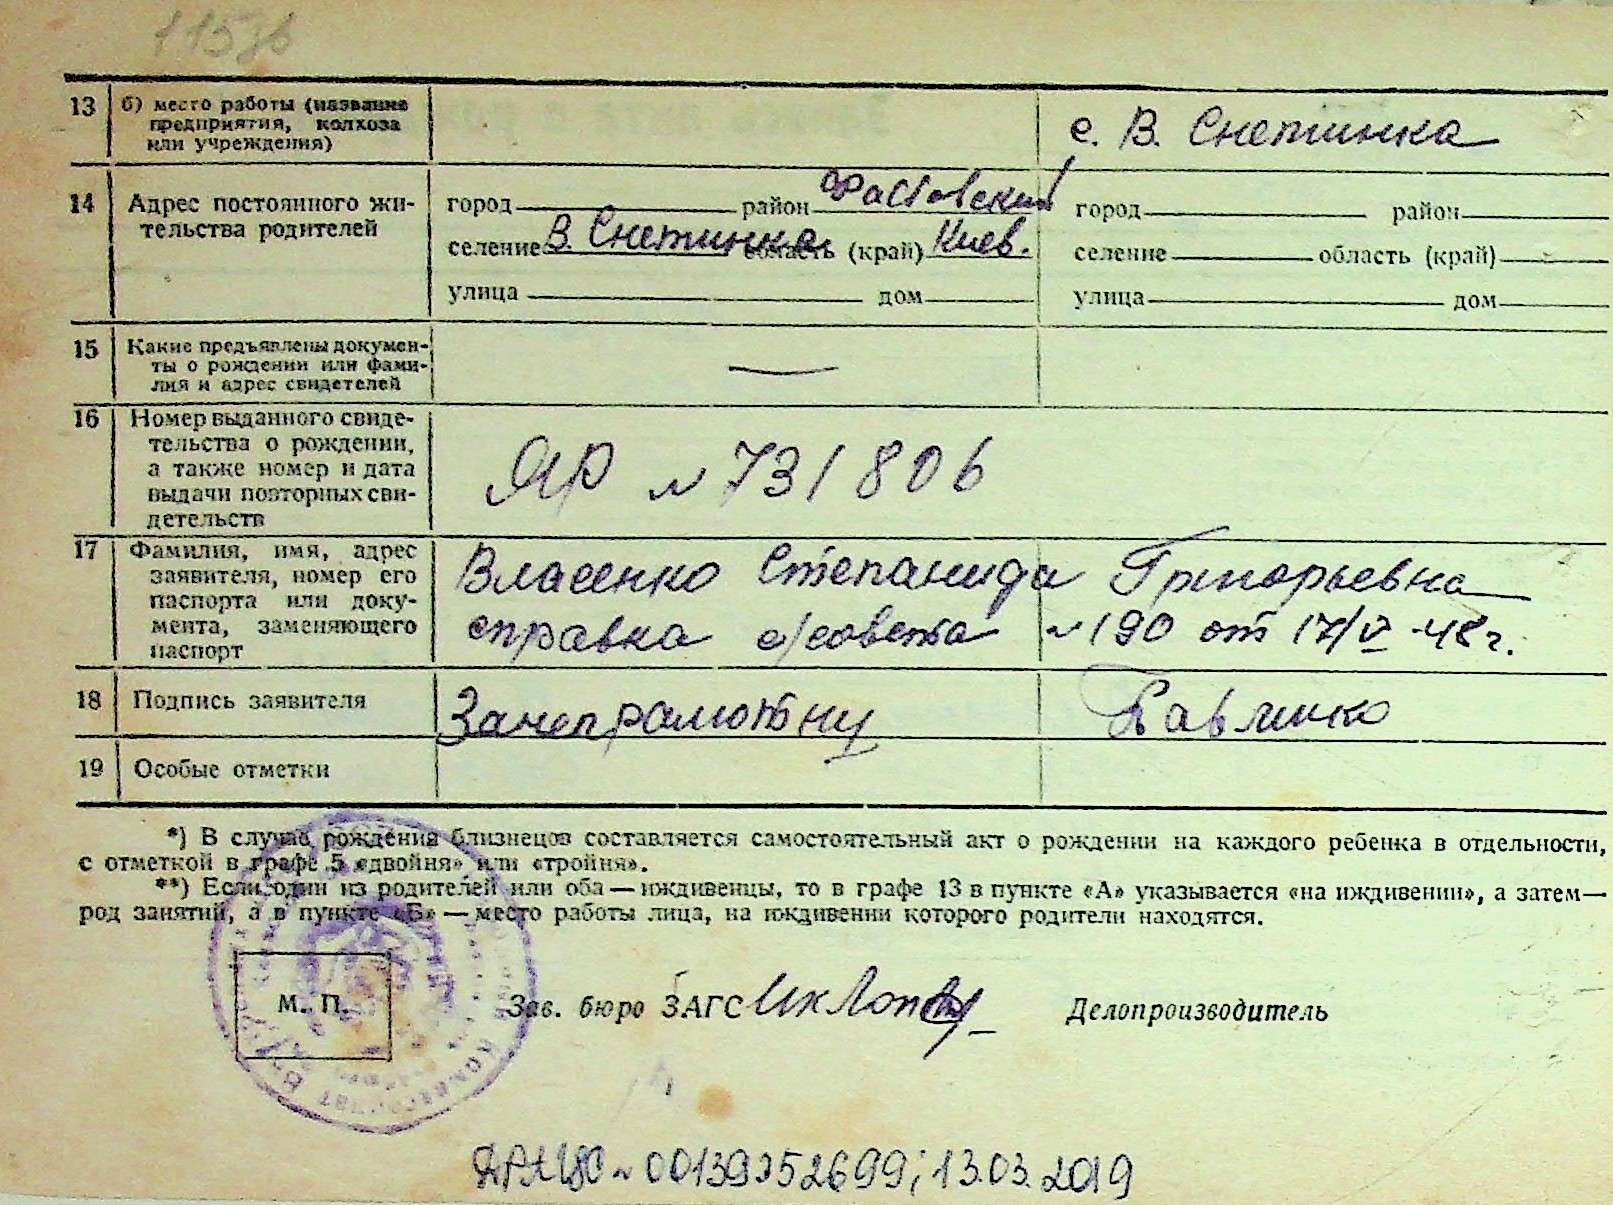 13 б) место работы (название
предприятия, колхоза
или учреждения)
с. В. Снетинка
14 Адрес постоянного жи-
тельства родителей
город район Фастовский
селение В. Снетинка область (край) Киев.
улица дом
город район
селение область (край)
улица дом
15 Какие предъявлены докумен-
ты о рождении или фами-
лия и адрес свидетелей
—
16 Номер выданного свиде-
тельства о рождении,
а также номер и дата
выдачи повторных сви-
детельств
ЯР № 731806
17 Фамилия, имя, адрес
заявителя, номер его
паспорта или доку-
мента, заменяющего
паспорт
Власенко Степанида Григорьевна
справка с/совета № 190 от 17/V-48 г.
18 Подпись заявителя
За неграмотну Павленко
19 Особые отметки
*) В случае рождения близнецов составляется самостоятельный акт о рождении на каждого ребенка в отдельности,
с отметкой в графе 5 «двойня» или «тройня».
**) Если один из родителей или оба — иждивенцы, то в графе 13 в пункте «А» указывается «на иждивении», а затем —
род занятий, а в пункте «Б» — место работы лица, на иждивении которого родители находятся.
М. П.
Зав. бюро ЗАГС
Делопроизводитель
ДРАЦС № 00139352699; 13.03.2019